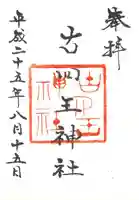 奉拝
古四王神社
平成二十五年八月十五日